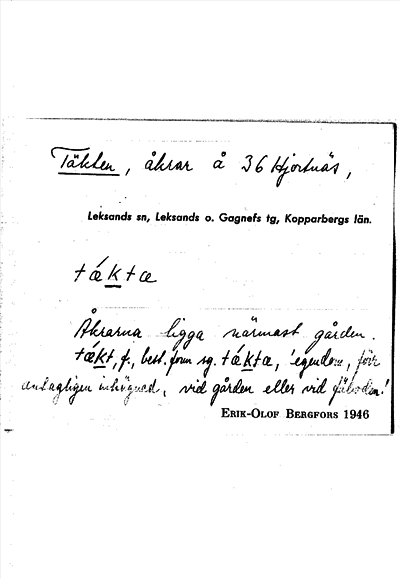 Täkten, åkrar å 36 Hjortnäs,
Leksands sn, Leksands o. Gagnefs tg, Kopparbergs län.
tǽktæ
Åkrarna ligga närmast gården.
tækt, f., best. form sg. tǽktæ, 'egendom, förr
antagligen inhägnad, vid gården eller vid fäboden'
ERIK-OLOF BERGFORS 1946